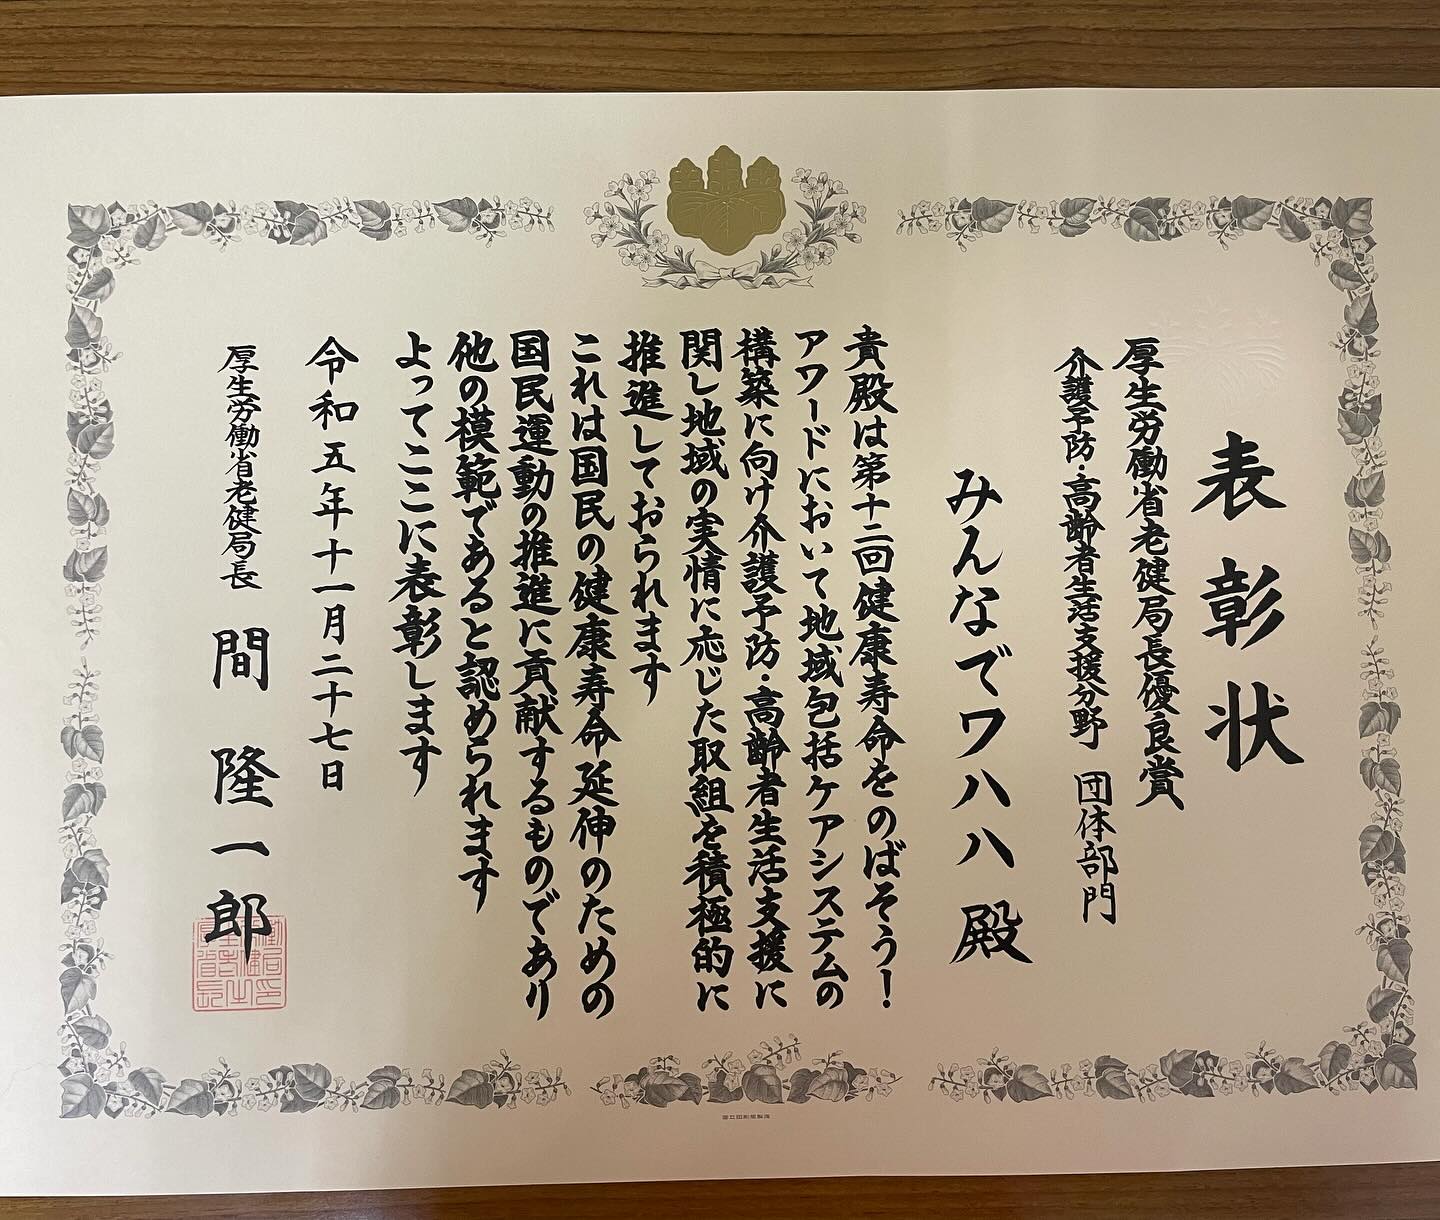 表彰状
厚生労働省老健局長優良賞
介護予防・高齢者生活支援分野 団体部門
みんなでワハハ 殿
貴殿は第十二回健康寿命をのばそう！
アワードにおいて地域包括ケアシステムの
構築に向け介護予防・高齢者生活支援に
関し地域の実情に応じた取組を積極的に
推進しておられます
これは国民の健康寿命延伸のための
国民運動の推進に貢献するものであり
他の模範であると認められます
よってここに表彰します
令和五年十一月二十七日
厚生労働省老健局長 間 隆一郎